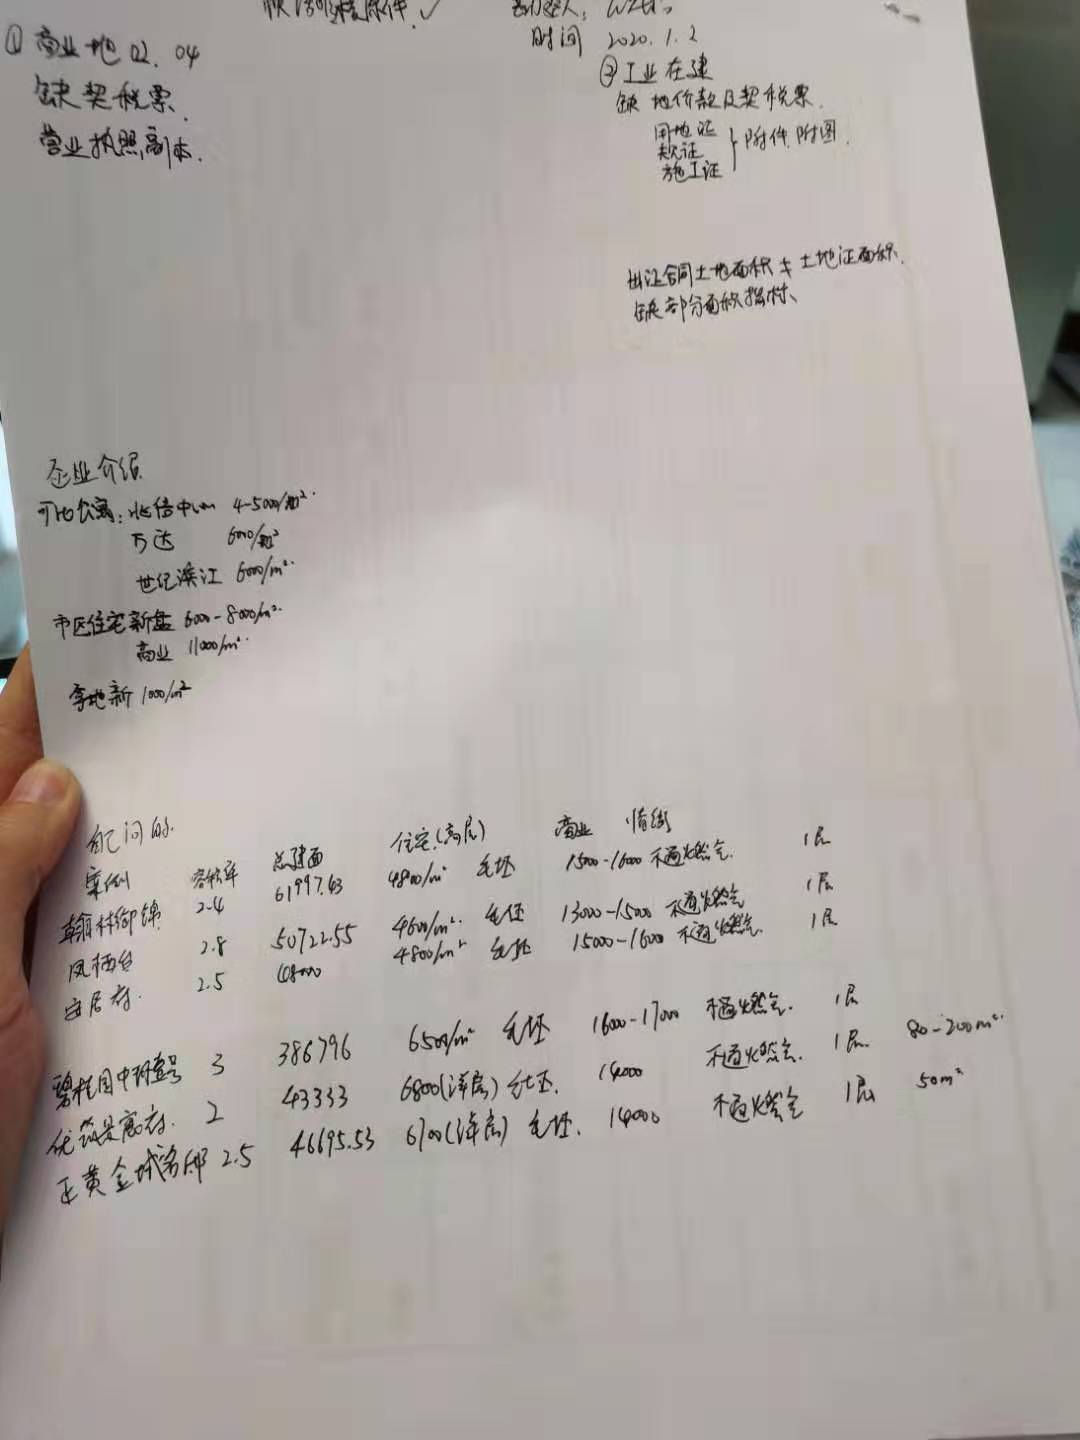 时间 2020.1.2
① 商业地 02、04
缺契税票、
营业执照副本、
② 工业在建
缺 地价款及契税票、
用地证
施工证
附件、附图
出让合同土地面积 ≠ 土地证面积、
缺部分面积
企业介绍
4-5000/m²
万达 6000/m²
世纪滨江 6000/m²
市区住宅新盘 6000-8000/m²
商业 11000/m²
1000/m²
自己问的
案例 容积率 总建面 住宅(高层) 商业
翰林御锦 2.4 61997.43 4800/m² 毛坯 15000-16000 不通燃气 1层
凤栖台 2.8 50722.55 4600/m² 毛坯 13000-15000 不通燃气 1层
安居府 2.5 4800/m² 毛坯 15000-1600 不通燃气 1层
碧桂园中 3 386796 6500/m² 毛坯 16000-17000 不通燃气 1层
2 43333 6800(洋房) 毛坯 14000 不通燃气 1层 80-200m²
正黄金域名邸 2.5 46695.53 6700(洋房) 毛坯 14000 不通燃气 1层 50m²